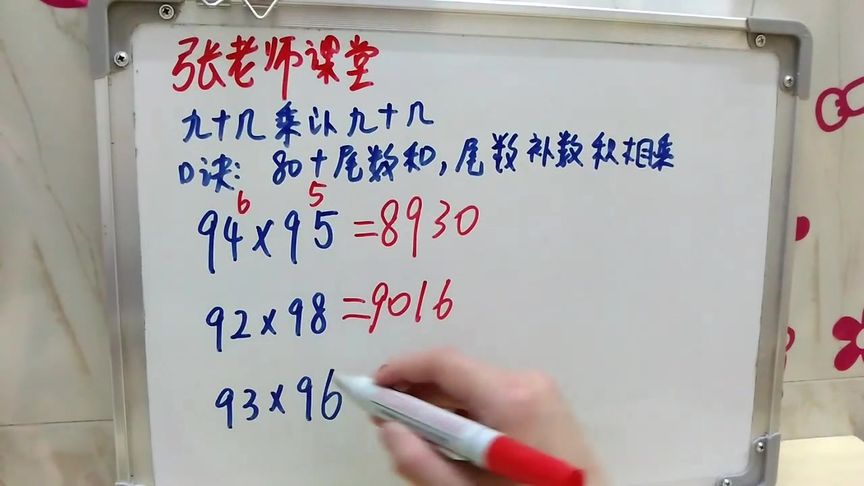 张老师课堂
九十几乘以九十几
口诀:80+尾数和,尾数补数积相乘
6 5
94×95=8930
92×98=9016
93×96